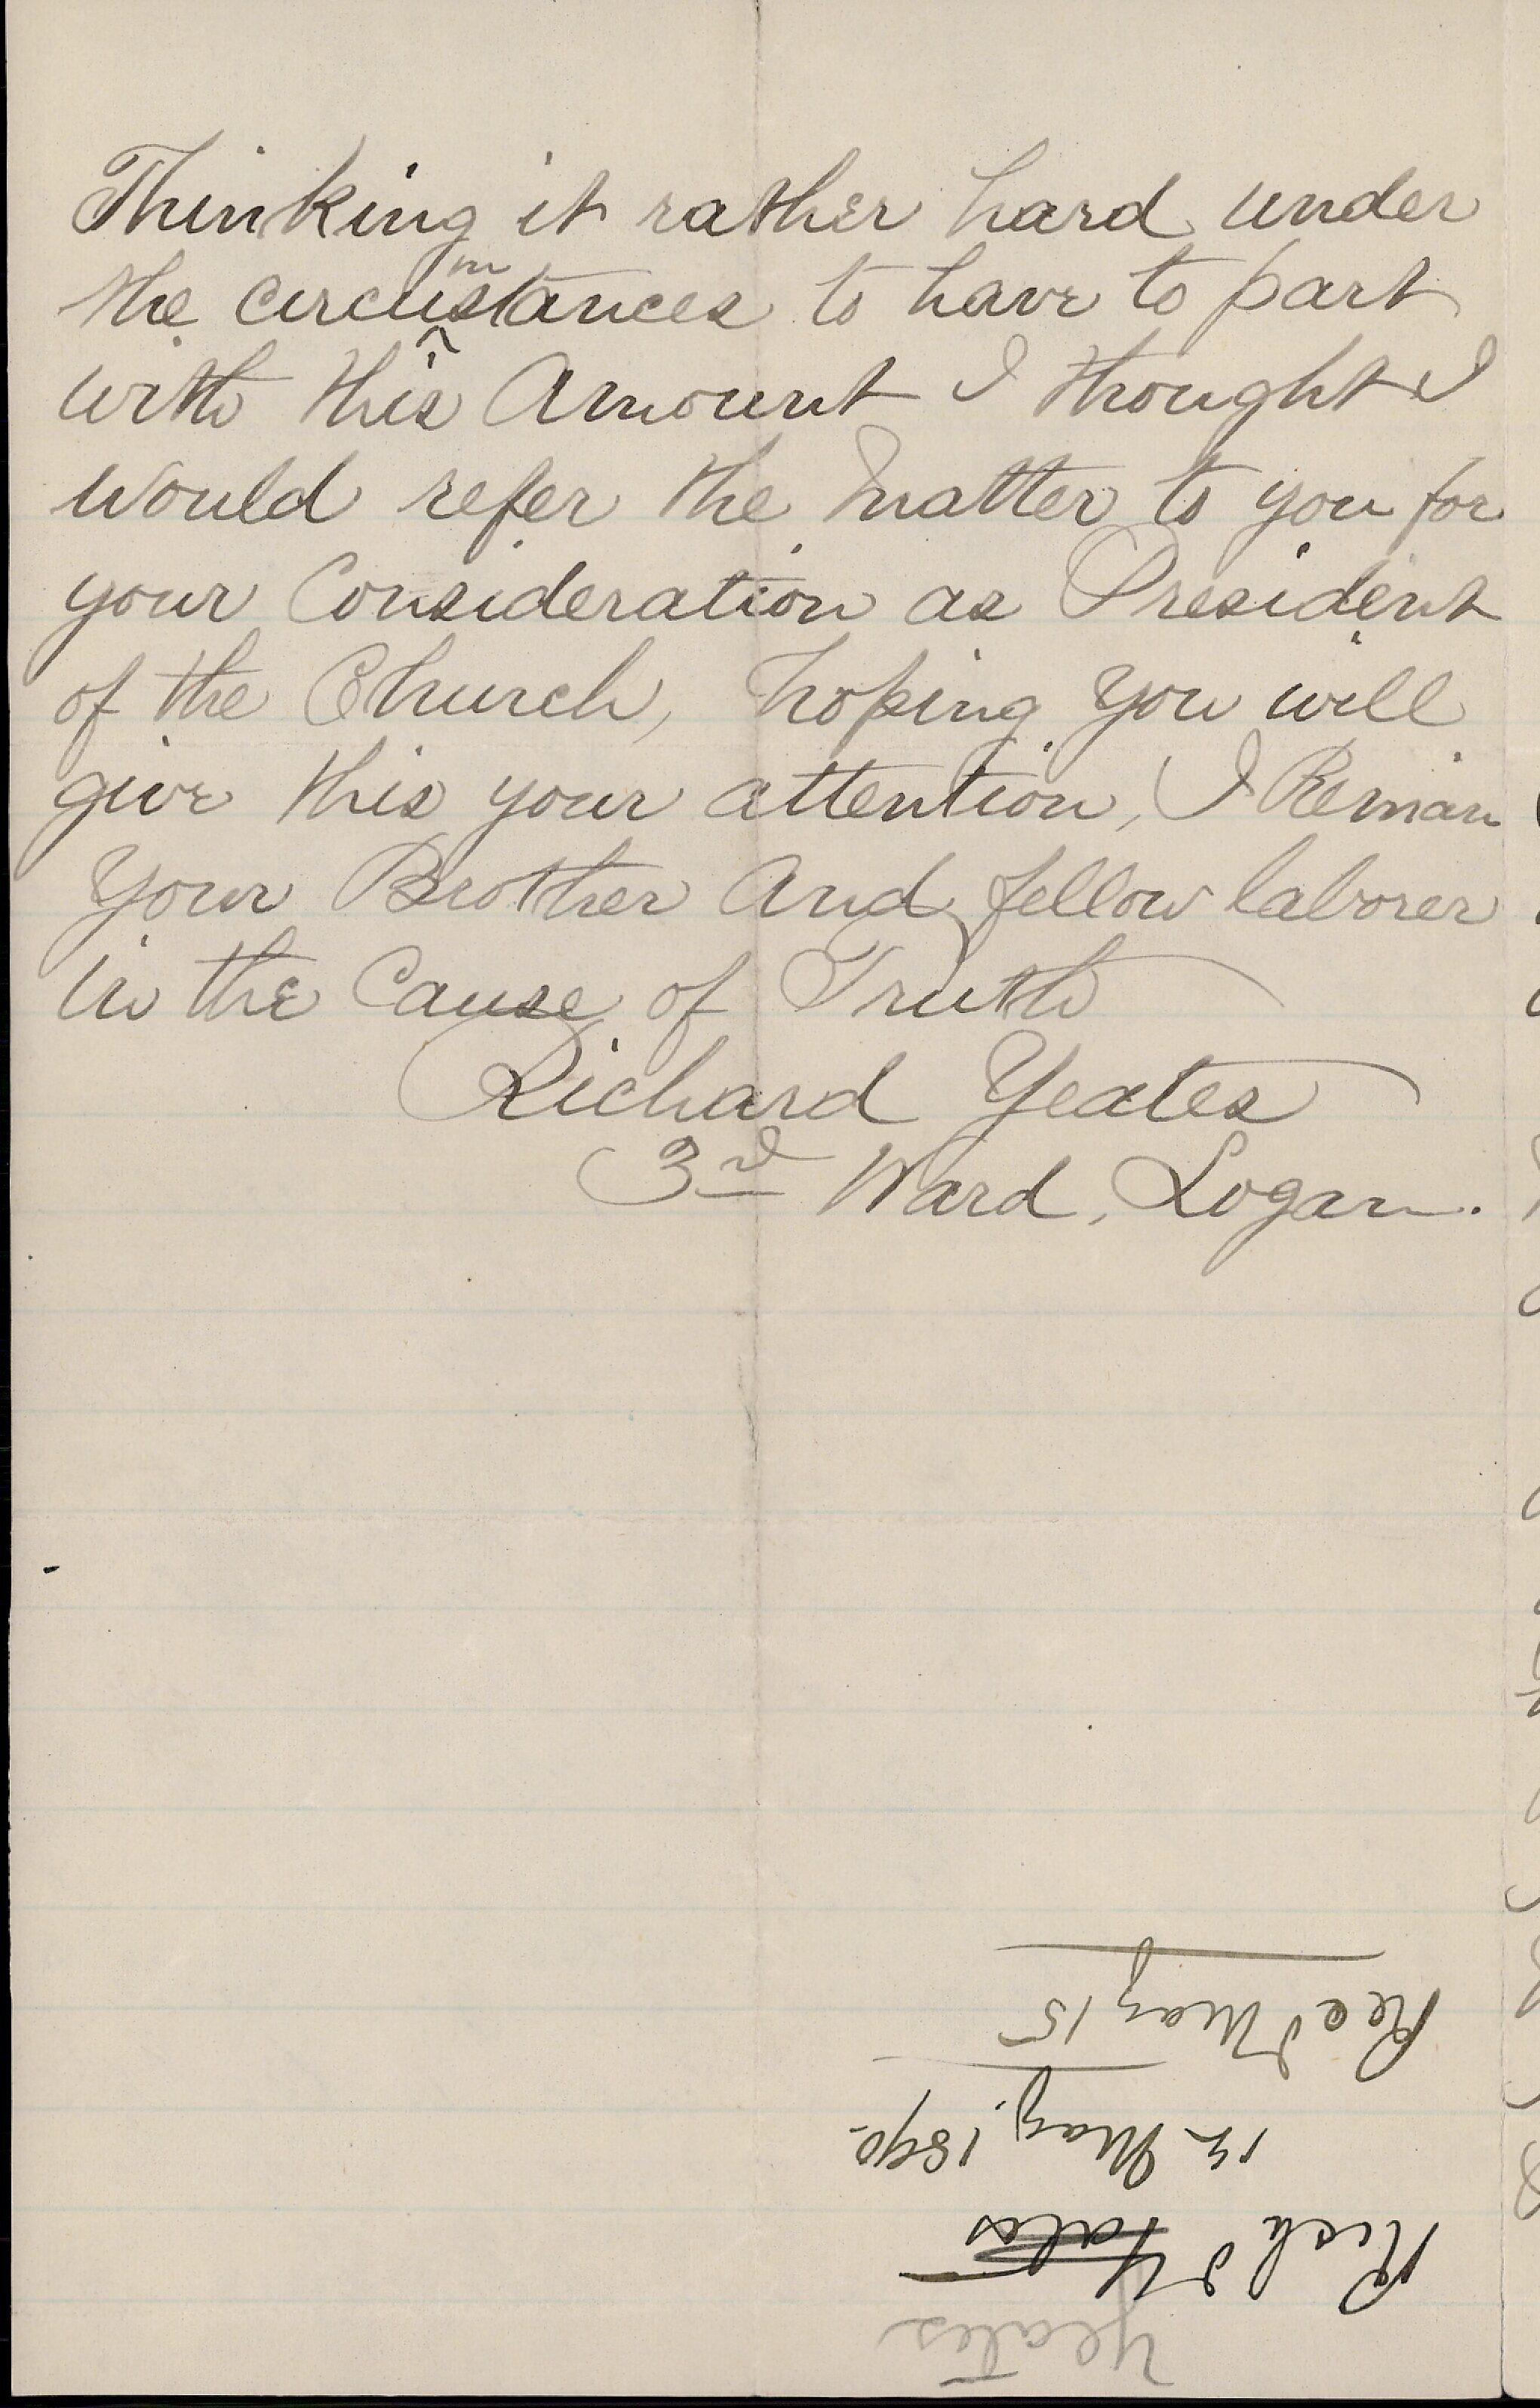 Thinking it rather hard under
the circumstances to have to part
with this Amount I thought I
would refer the Matter to you for
your Consideration as President
of the Church, hoping you will
give this your attention, I Remain
Your Brother And fellow laborer
in the Cause of Truth
Richard Yeates
3rd Ward, Logan.
Yeates
Richd Yates
12 May, 1890
Recd May 15